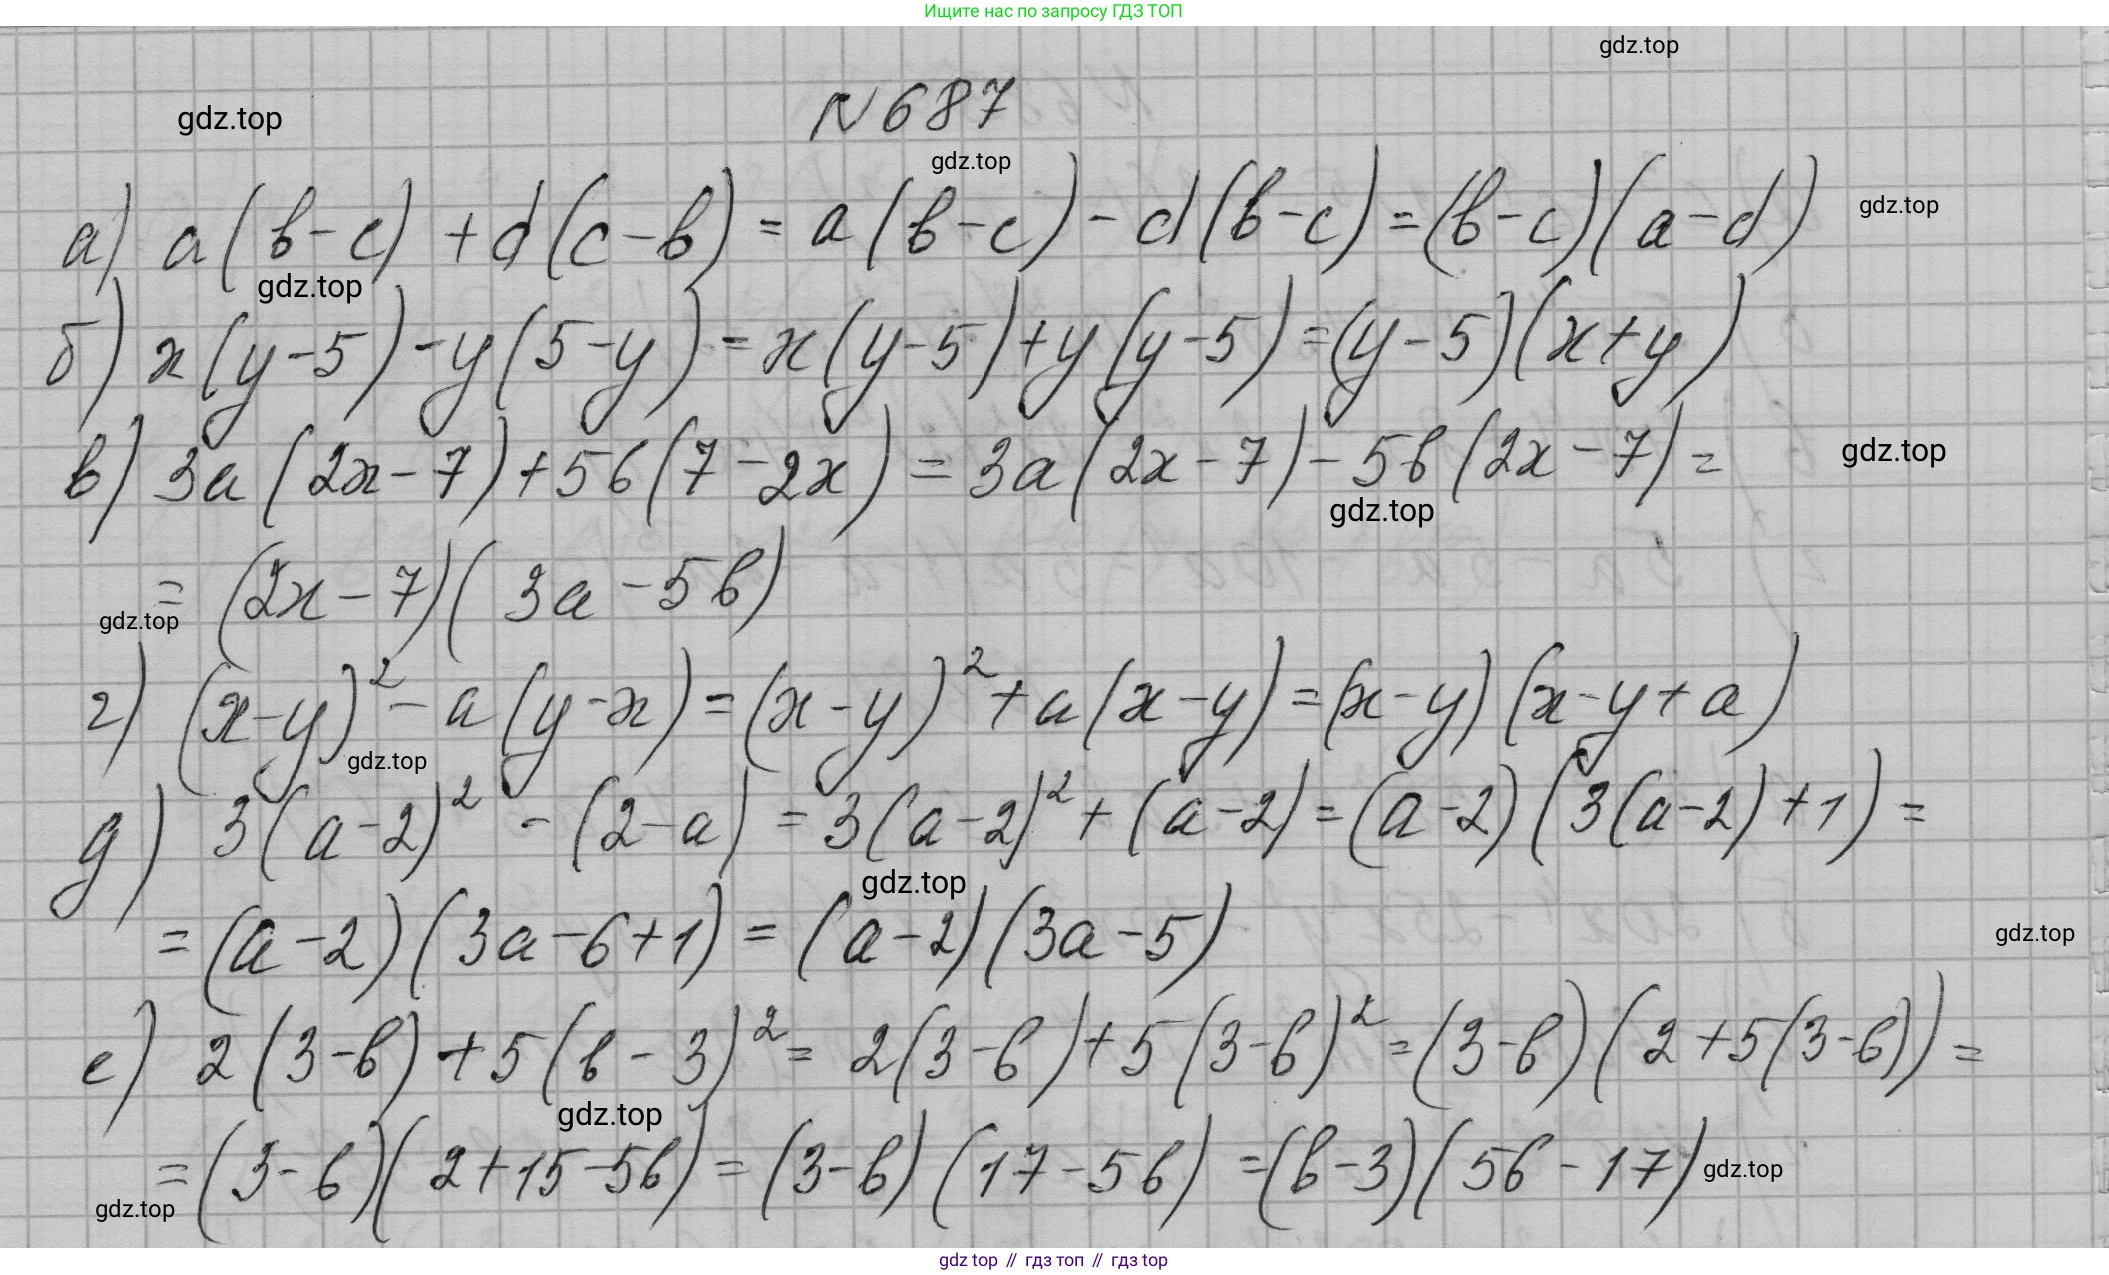 Ищите нас по запросу ГДЗ ТОП
gdz.top
N 687
gdz.top
gdz.top
а) a(b-c)+d(c-b)=a(b-c)-d(b-c)=(b-c)(a-d)
gdz.top
gdz.top
б) x(y-5)-y(5-y)=x(y-5)+y(y-5)=(y-5)(x+y)
в) 3a(2x-7)+5b(7-2x)=3a(2x-7)-5b(2x-7)=
gdz.top
gdz.top
=(2x-7)(3a-5b)
gdz.top
г) (x-y)²-a(y-x)=(x-y)²+a(x-y)=(x-y)(x-y+a)
gdz.top
д) 3(a-2)²-(2-a)=3(a-2)²+(a-2)=(a-2)(3(a-2)+1)=
gdz.top
=(a-2)(3a-6+1)=(a-2)(3a-5)
gdz.top
е) 2(3-b)+5(b-3)²=2(3-b)+5(3-b)²=(3-b)(2+5(3-b))=
gdz.top
=(3-b)(2+15-5b)=(3-b)(17-5b)=(b-3)(5b-17)
gdz.top
gdz.top
gdz top // гдз топ // гдз top